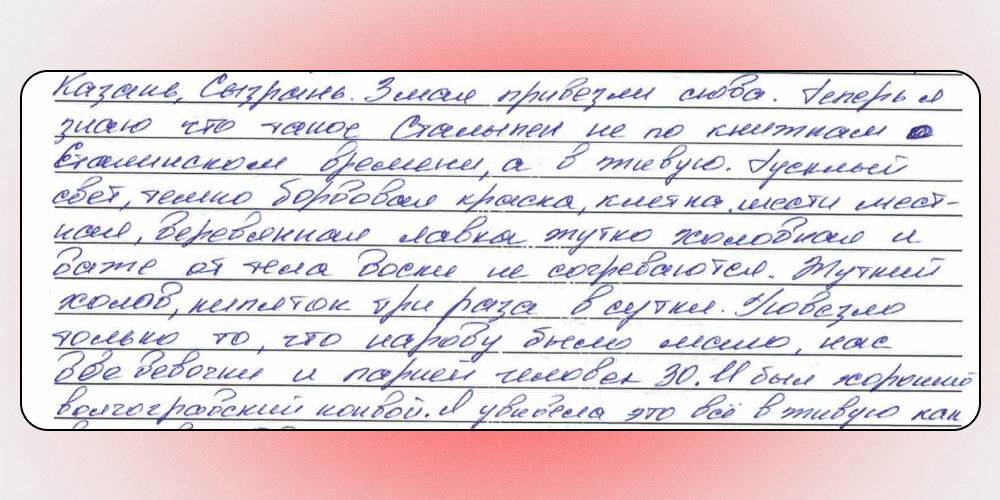 Казань, Сызрань. 3 мая привезли сюда. Теперь я
знаю что такое Сталыпен не по книжкам о
Сталинском времени, а в живую. Тусклый
свет, темно бордовая краска, клетка шести мест-
ная, деревянная лавка жутко холодная и
даже от тела доски не согреваются. Жуткий
холод, кипяток три раза в сутки. Повезло
только то, что народу было мало, нас
две девочки и парней человек 30. И был хороший
волгоградский конвой. Я увидела это всё в живую как